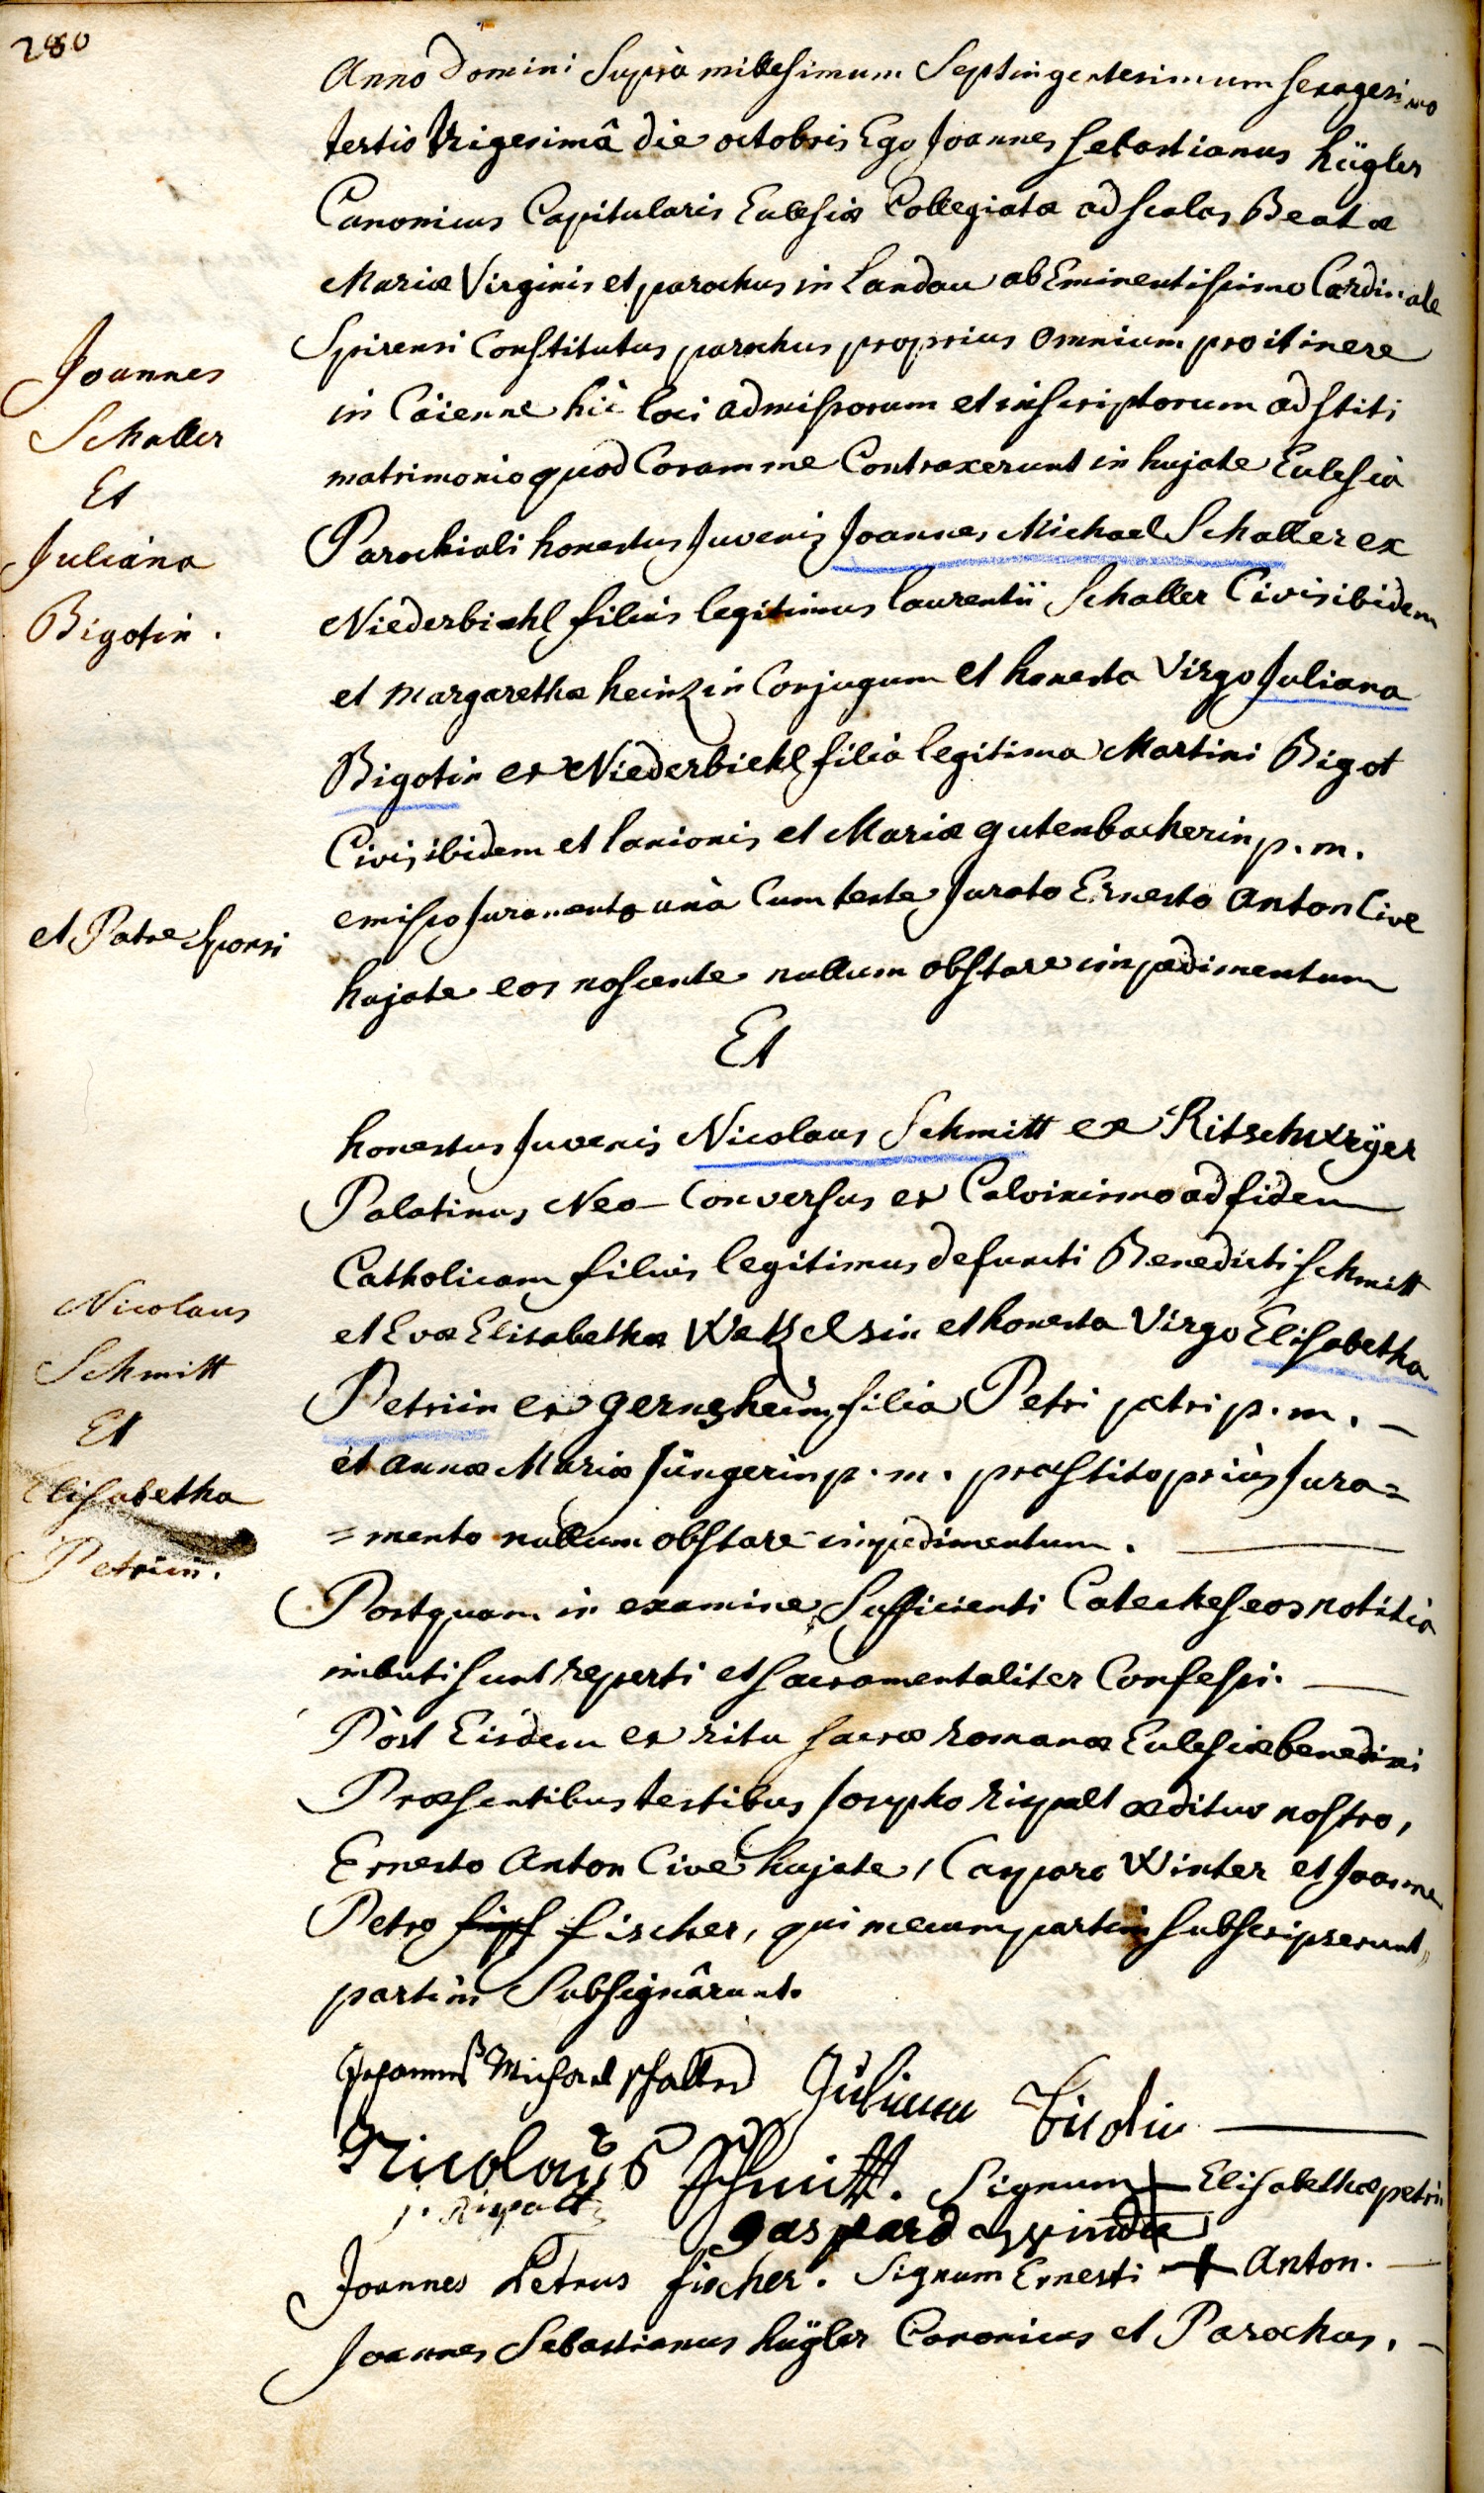 280
Anno Domini Suprà millesimum Septingentesimum sexagesimo
tertio trigesimâ die octobris Ego Joannes sebastianus hügler
Canonicus Capitularis Eclesiæ Collegiatæ ad scalas Beatæ
Mariæ Virginis et parochus in Landau ab Eminentissimo Cardinale
Spirensi Constitutus parochus proprius omnium pro itinere
in Càienne hìc loci admissorum et inscriptorum adstiti
matrimonio quod Coram me Contraxerunt in hujate Eclesià
Parochiali honestus Juvenis Joannes Michael Schaller ex
Niederbiehl filius legitimus laurentii Schaller Civis ibidem
et Margarethæ heinzin Conjugum et honesta Virgo Juliana
Bigotin ex Niederbiehl filia legitima Martini Bigot
Civis ibidem et lanionis et Mariæ gutenbacherin p. m.
emisso Juramento unà Cum teste Jurato Ernesto Anton Cive
hujate eos noscente nullum obstare impædimentum
Joannes
Schaller
Et
Juliana
Bigotin.
et Patre sponsi
Et
honestus Juvenis Nicolaus Schmitt ex Kitschwÿer
Palatinus Neo-Conversus ex Calvinismo ad fidem
Catholicam filius legitimus defuncti Benedicti schmitt
et Evæ Elisabethæ Wetzelsin et honesta Virgo Elisabetha
Petriin ex gernsheim filia Petri petri p. m. –
et Annæ Mariæ Jüngerin p. m. præstito priùs Jura=
=mento nullum obstare impedimentum.
Nicolaus
Schmitt
Et
Elisabetha
Petriin.
Postquam in examine Sufficienti Catecheseos notitià
imbuti sunt reperti et sacramentaliter Confessi.
Pòst Eisdem ex ritu sacræ romanæ Eclesiæ benedixi
Præsentibus testibus Josepho rispalt ædituo nostro,
Ernesto Anton Cive hujate, Casparo Winter et Joanne
Petro fischer, qui mecum partim subscripserunt,
partìm Subsignârunt.
Johannes Michael schaller Juliana bicotin
Nicolaus Schmitt. Signum + Elisabethæ petriin
j. Rispalt
gaspard
Joannes Petrus fischer. Signum Ernesti + Anton.
Joannes Sebastianus hügler Canonicus et Parochus.